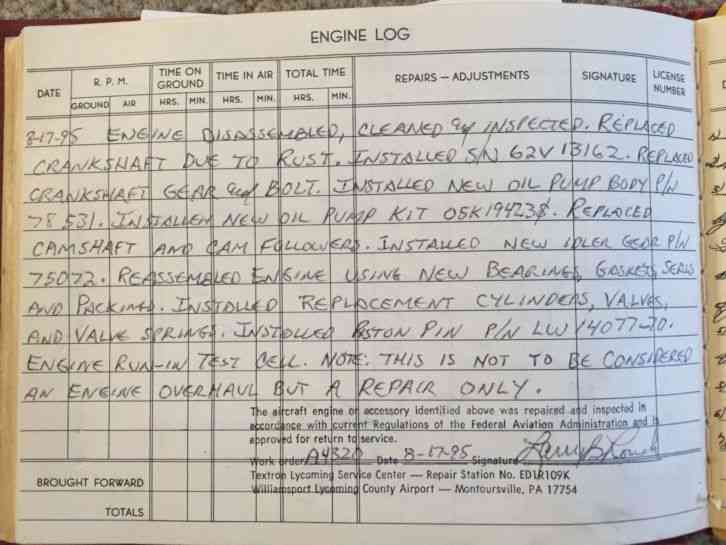 ENGINE LOG
DATE R. P. M. TIME ON GROUND TIME IN AIR TOTAL TIME REPAIRS — ADJUSTMENTS SIGNATURE LICENSE NUMBER
GROUND AIR HRS. MIN. HRS. MIN. HRS. MIN.
8-17-95 ENGINE DISASSEMBLED, CLEANED and INSPECTED. REPLACED
CRANKSHAFT DUE TO RUST. INSTALLED S/N 62V13162. REPLACED
CRANKSHAFT GEAR and BOLT. INSTALLED NEW OIL PUMP BODY P/N
78531. INSTALLED NEW OIL PUMP KIT 05K19423. REPLACED
CAMSHAFT AND CAM FOLLOWERS. INSTALLED NEW IDLER GEAR P/N
75072. REASSEMBLED ENGINE USING NEW BEARINGS, GASKETS, SEALS
AND PACKING. INSTALLED REPLACEMENT CYLINDERS, VALVES,
AND VALVE SPRINGS. INSTALLED PISTON PIN P/N LW14077-70.
ENGINE RUN-IN TEST CELL. NOTE: THIS IS NOT TO BE CONSIDERED
AN ENGINE OVERHAUL BUT A REPAIR ONLY.
The aircraft engine or accessory identified above was repaired and inspected in
accordance with current Regulations of the Federal Aviation Administration and is
approved for return to service.
Work order A4320 Date 8-17-95 Signature
Textron Lycoming Service Center — Repair Station No. ED1R109K
Williamsport Lycoming County Airport — Montoursville, PA 17754
BROUGHT FORWARD
TOTALS